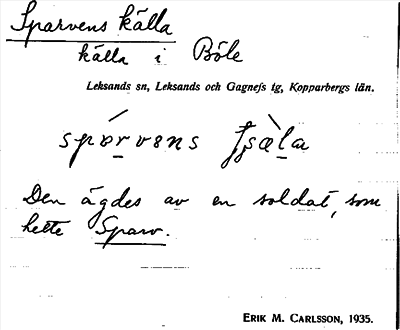 Sparvens källa
källa i Böle
Leksands sn, Leksands och Gagnefs tg, Kopparbergs län.
spɐrvens
Den ägdes av en soldat, som
hette Sparv.
ERIK M. CARLSSON, 1935.